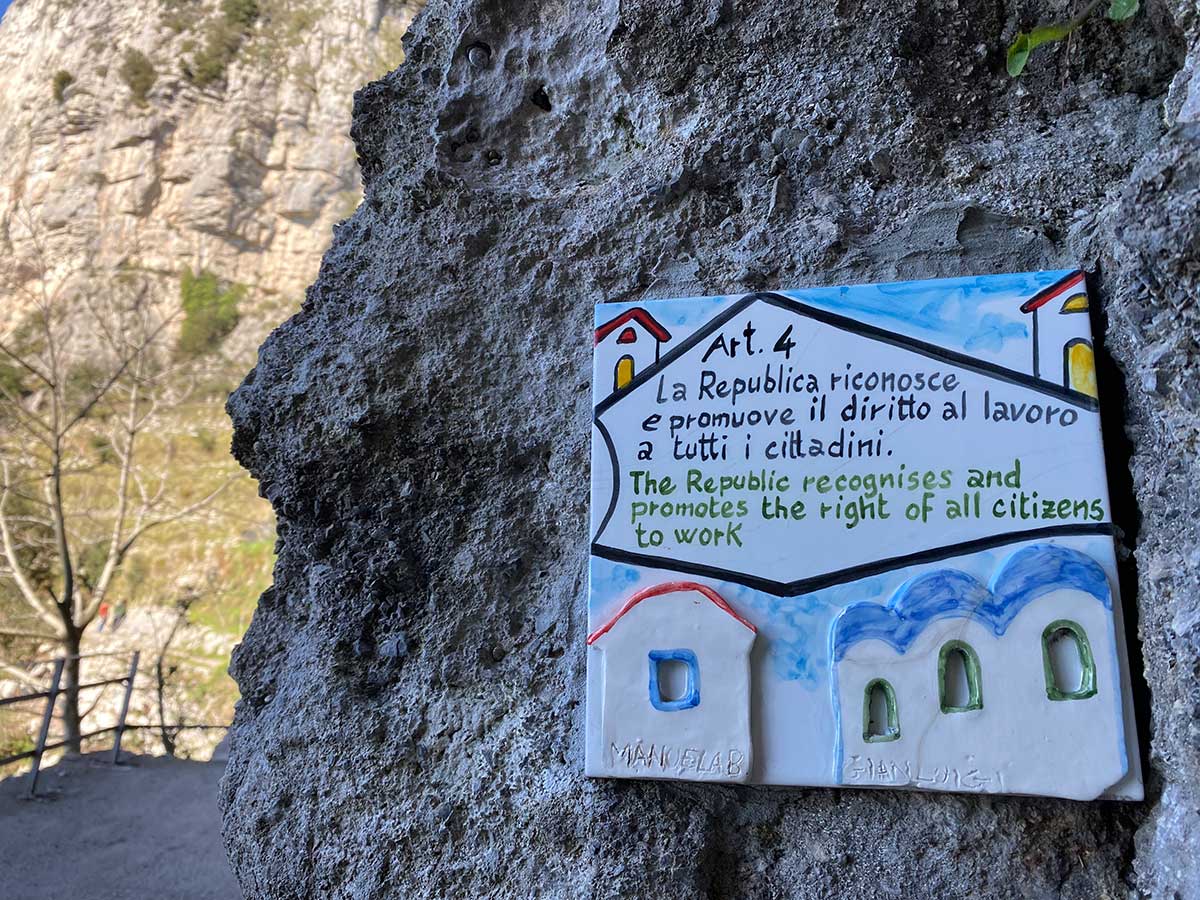 Art. 4
La Repubblica riconosce
e promuove il diritto al lavoro
a tutti i cittadini.
The Republic recognises and
promotes the right of all citizens
to work
MANUELA B
GIANLUIGI